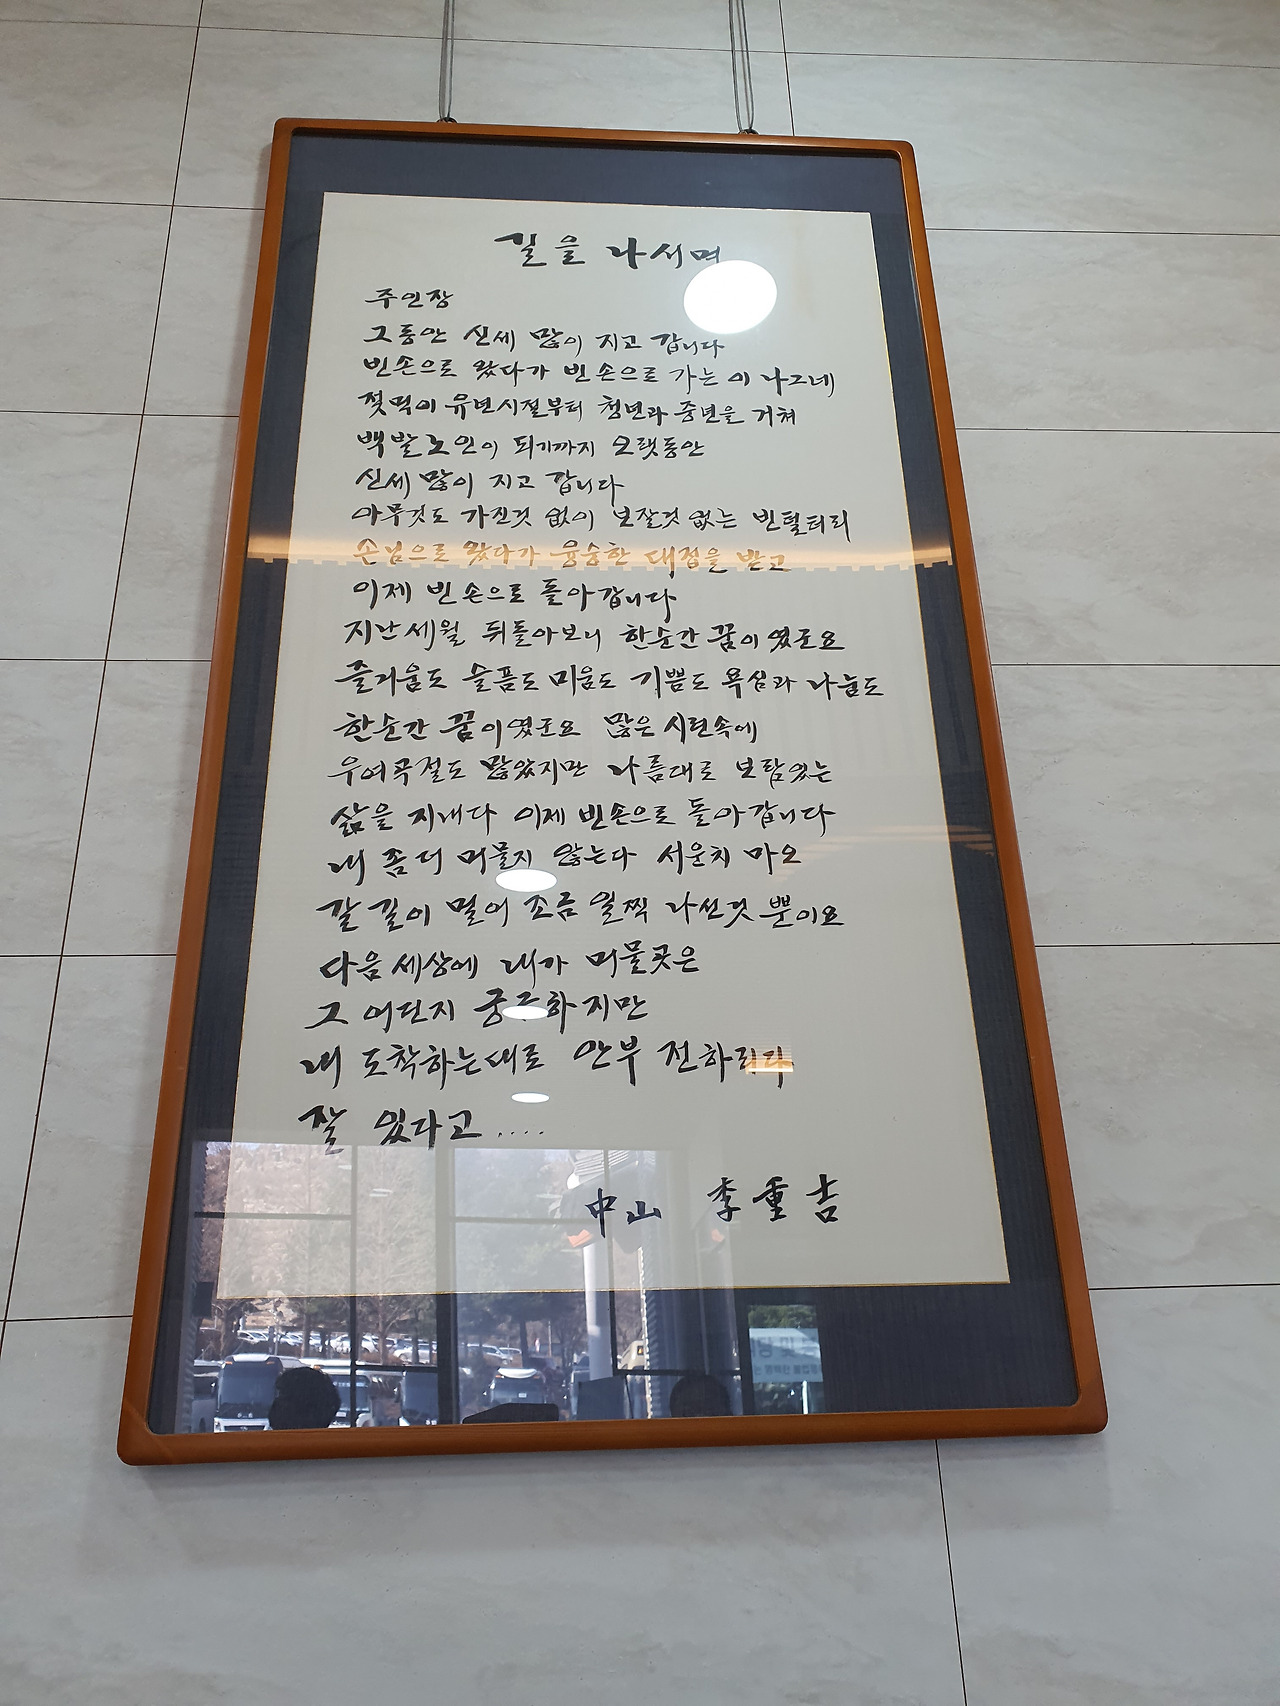 길을 나서며
주인장
그동안 신세 많이 지고 갑니다
빈손으로 왔다가 빈손으로 가는 이 나그네
젖먹이 유년시절부터 청년과 중년을 거쳐
백발노인이 되기까지 오랫동안
신세 많이 지고 갑니다
아무것도 가진것 없이 보잘것 없는 빈털터리
손님으로 왔다가 융숭한 대접을 받고
이제 빈손으로 돌아갑니다
지난세월 뒤돌아보니 한순간 꿈이였군요
즐거움도 슬픔도 미움도 기쁨도 욕심과 나눔도
한순간 꿈이였군요 많은 시련속에
우여곡절도 많았지만 나름대로 보람있는
삶을 지내다 이제 빈손으로 돌아갑니다
내 좀더 머물지 않는다 서운치 마오
갈 길이 멀어 조금 일찍 나선것 뿐이요
다음 세상에 내가 머물곳은
그 어딘지 궁금하지만
내 도착하는대로 안부 전하리다
잘 있다고....
中山 李重吉